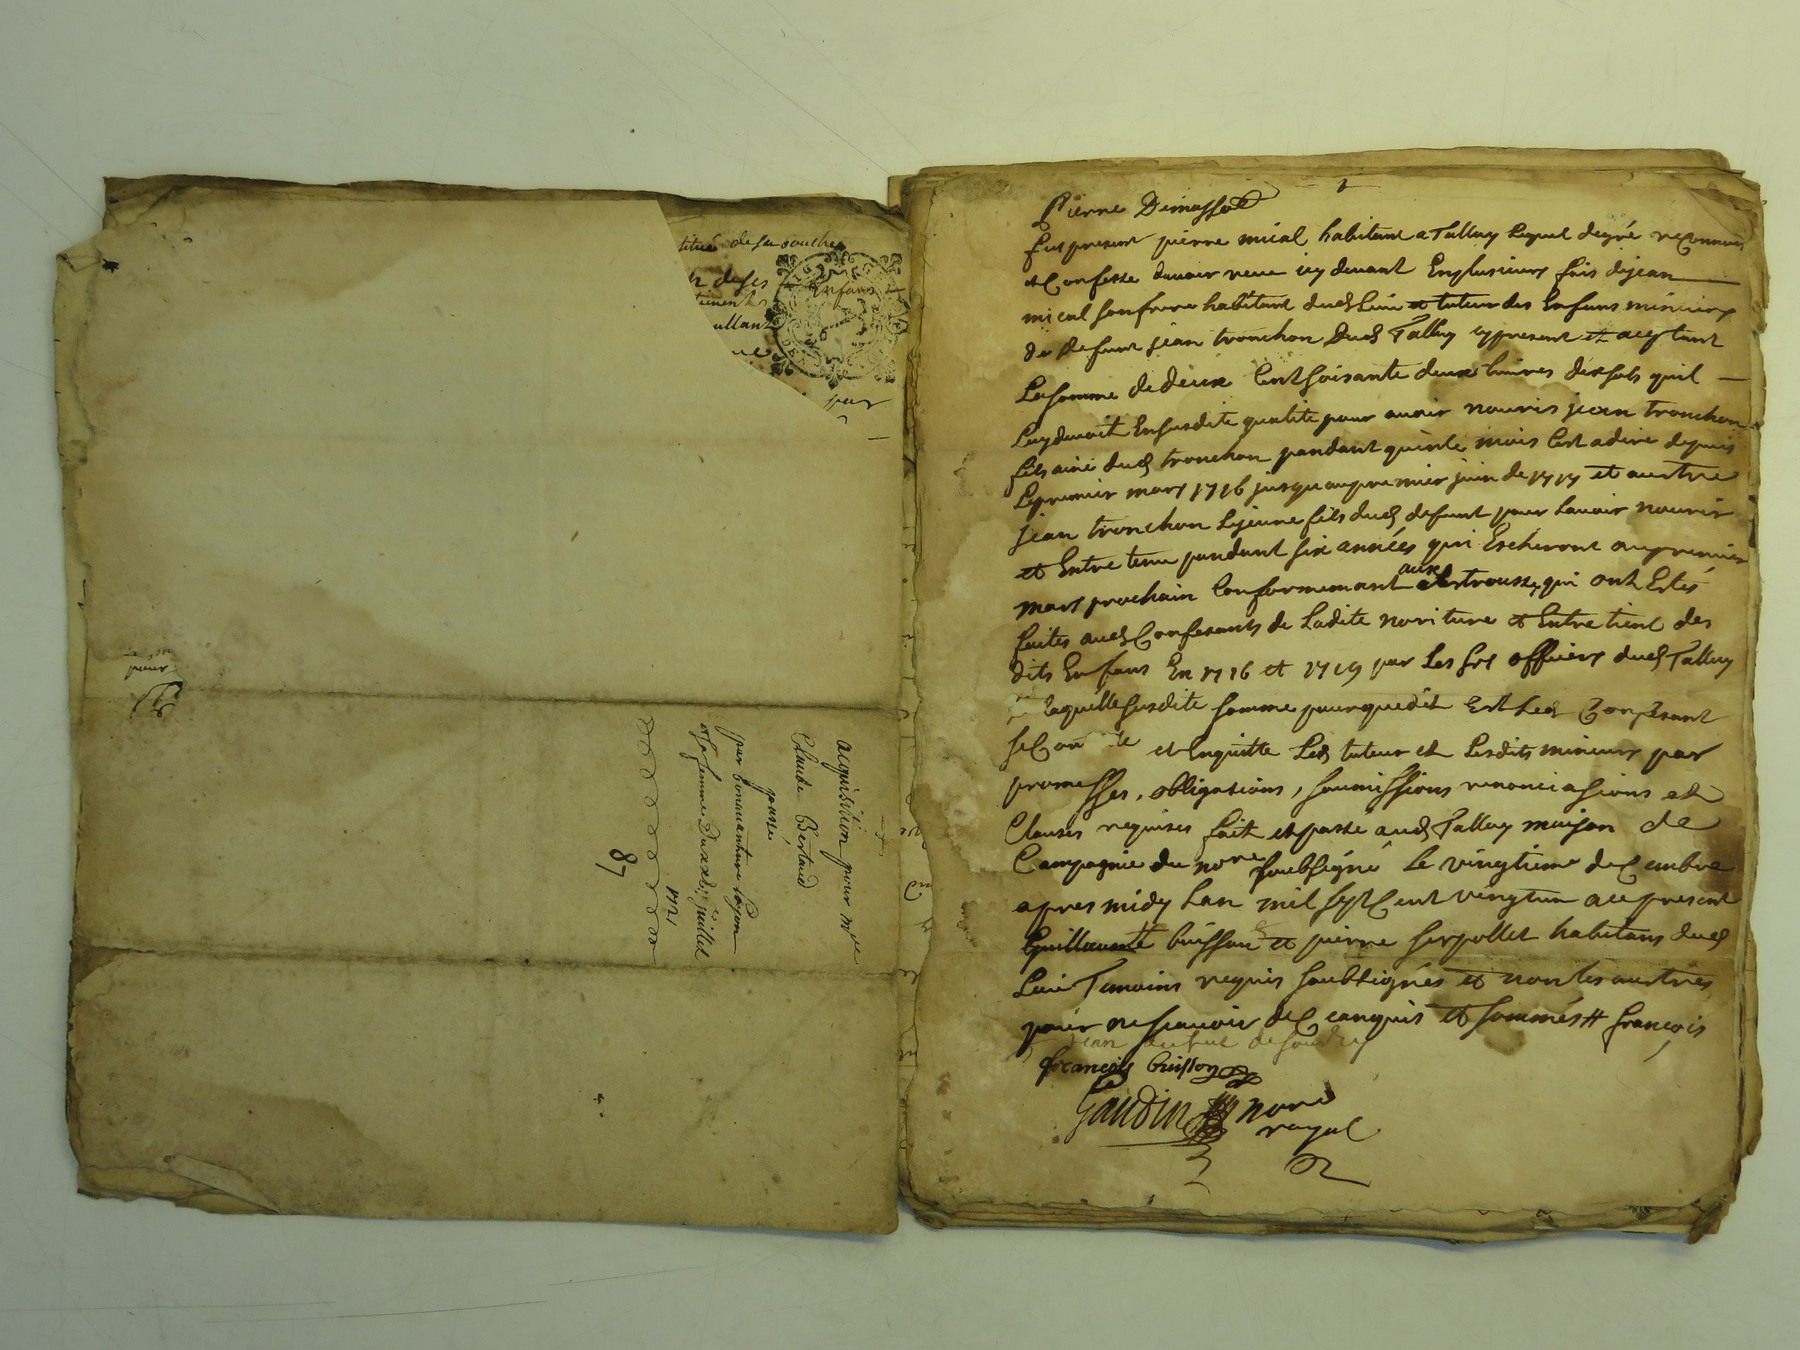 titué de sa bouche
r de ses Enfans
par
pour
acquisition pour Mre
Claude Bertaud
passée
par bonnaventure
et sa femme Du xxie juillet
1721
87
Pierre Demassot
fut present pierre mical habitant a Talluy lequel de gré reconnoit
et Confesse davoir receu icy devant En plusieurs fois de jean
mical son frere habitant dud Lieu et tuteur des Enfans mineurs
de defunt jean tronchon Dud Talluy cy present et aceptant
La somme de deux Cent soisante deux livres dix sols quil
Luy devoit En susdite qualité pour avoir nouris jean tronchon
fils ainé dud tronchon pandant quinse mois Cest a dire depuis
Le premier mars 1716 jusqu au premier juin de 1717 et au
jean tronchon Le jeune fils dud defunt pour Lavoir nouris
et Entretenu pendant six années qui Escheront au premier
mars prochain Conformemant aux qui ont Estés
faites aud Confesants de Ladite noriture et Entretient des
dits Enfans En 1716 et 1719 par Les srs officiers dud Talluy
laquelle susdite somme pourquedit est Led Confesant
se Con te et En quitte Led tuteur et Lesdits mineurs par
promesses, obligations, soumissions renonciasions et
Clauses requises fait et passé aud Talluy maison de
Campagnie du nore soubsigné Le vingtieme decembre
apres midy Lan mil sept Cent vingt un a ce present
Guillaume buisson et pierre serpollet habitans dud
Lieu Temoins requis soubsignés et non les
pour ne scavoir de ce enquis et sommés # françois
francois buisson
Gaudin nore
royal